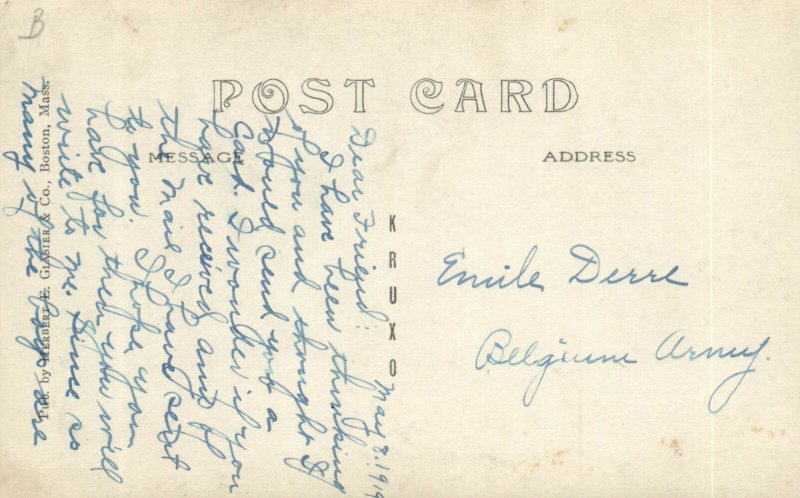 B
POST CARD
MESSAGE
ADDRESS
KRUXO
Pub. by HERBERT E. GLASIER & Co., Boston, Mass.
May 8. 1919
Dear Friend:
I have been thinking
of you and thought I
would send you a
card. I wonder if you
have received any of
the mail I have sent
to you. I hope you
have for then you will
write to me. Since so
many of the boys are
Emile Derre
Belgium Army.